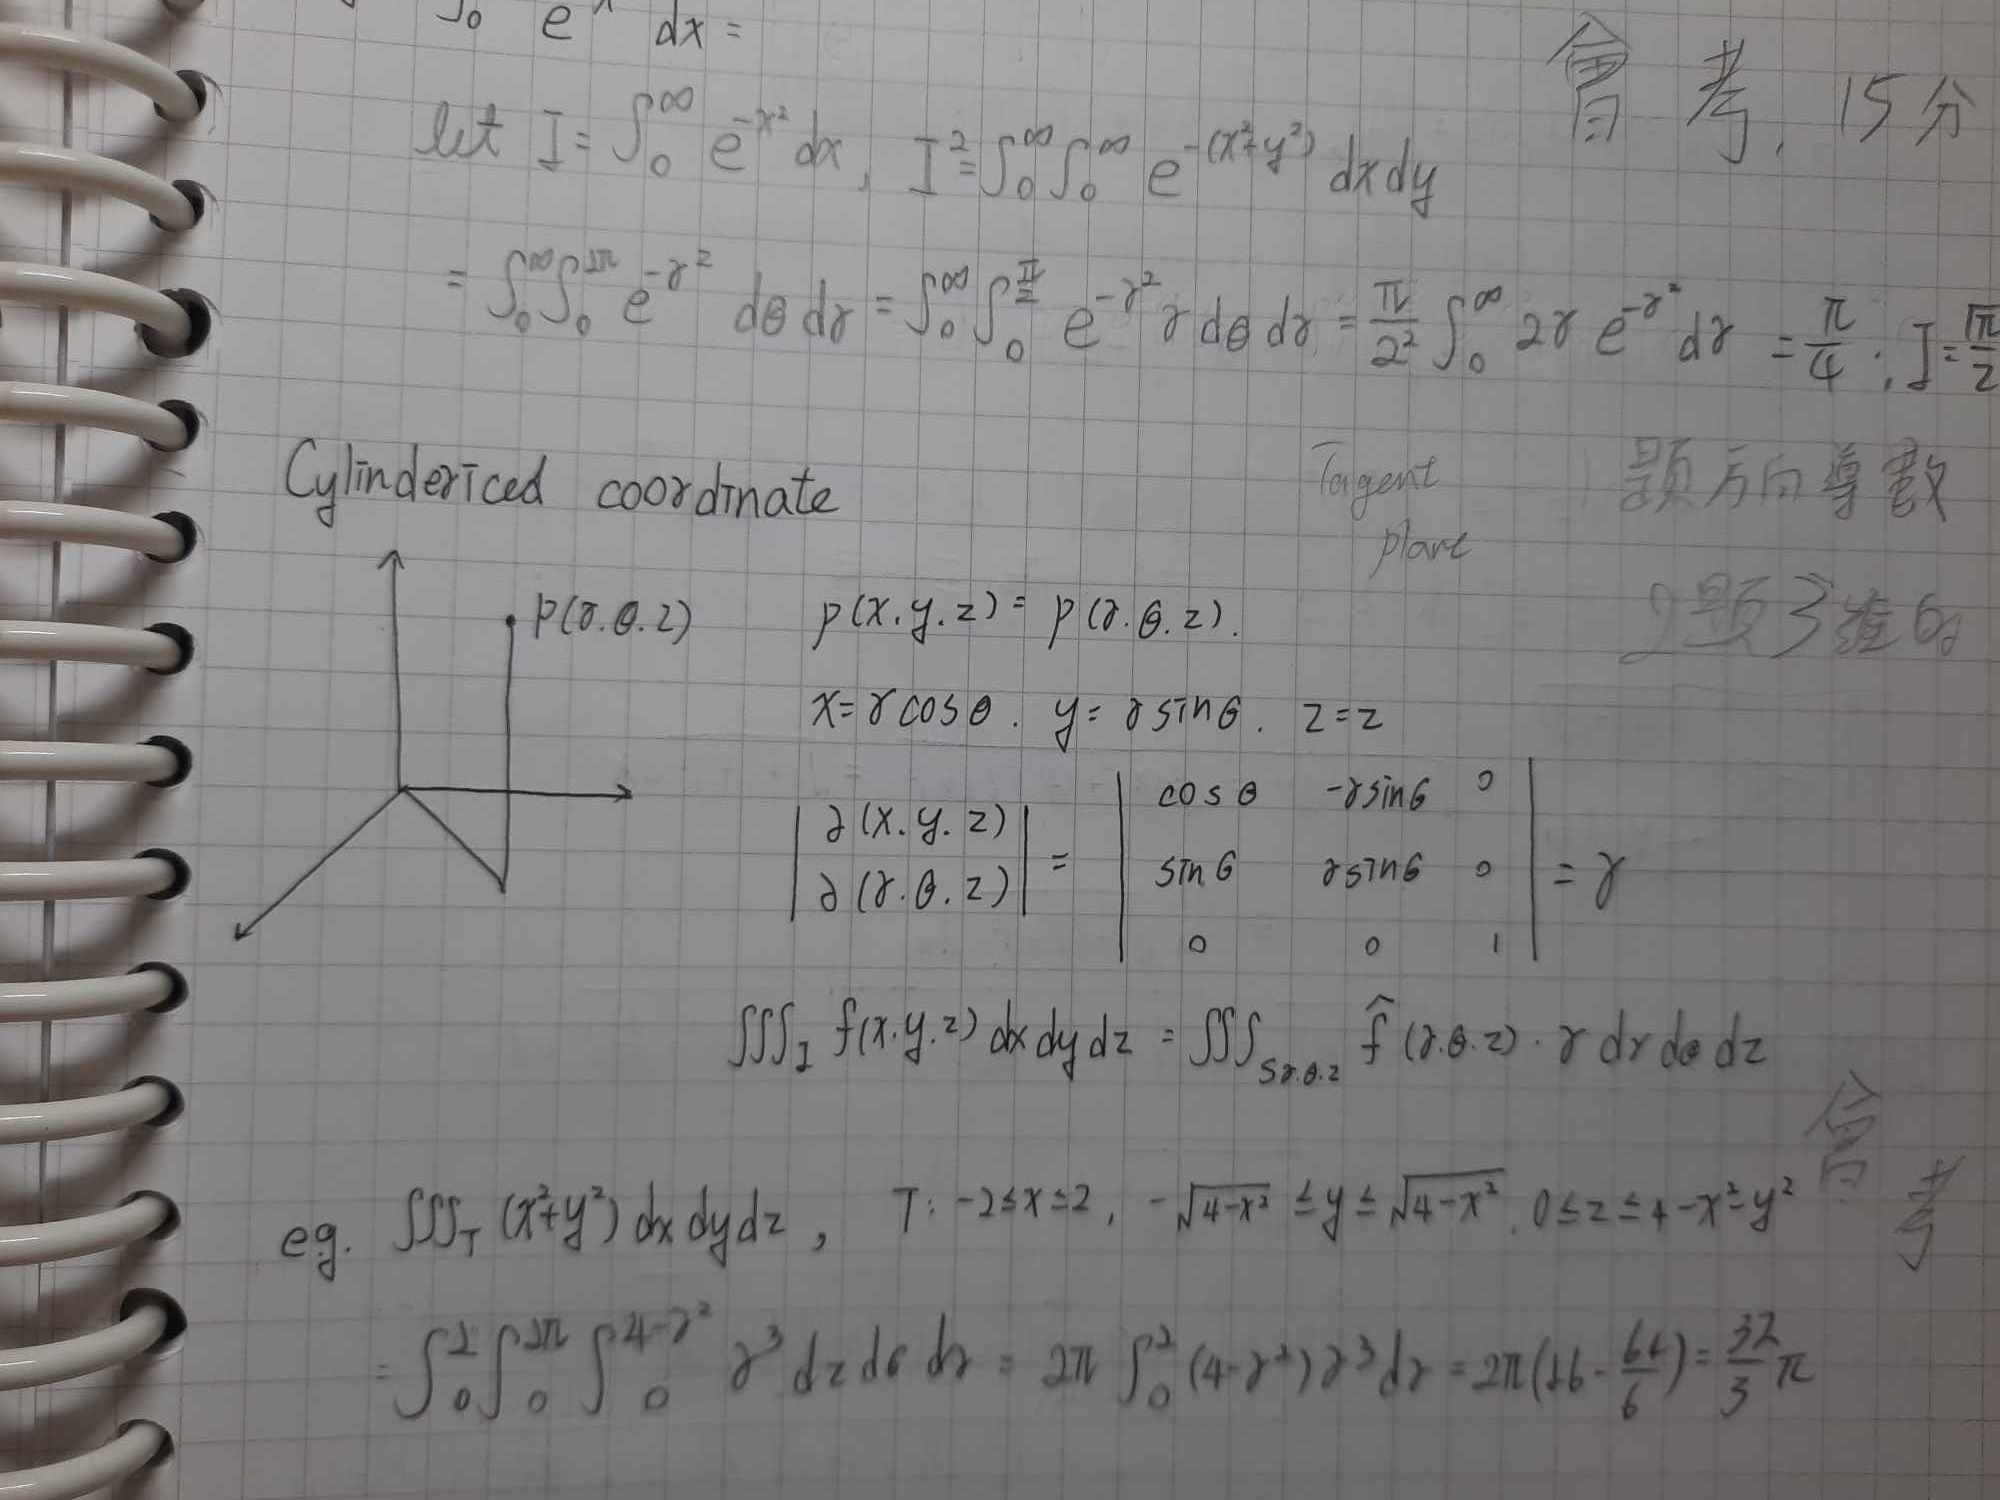 ∫₀ eˣ dx =
會考, 15分
let I = ∫₀^∞ e^{-x²} dx, I² = ∫₀^∞ ∫₀^∞ e^{-(x²+y²)} dx dy
= ∫₀^∞ ∫₀^{2π} e^{-r²} dθ dr = ∫₀^∞ ∫₀^{π/2} e^{-r²} r dθ dr = π/2² ∫₀^∞ 2r e^{-r²} dr = π/4 ∴ I = √π/2
Cylindericed coordinate
Tagent
plane
1題方向導數
2題3維的
p(r.θ.z)
p(x.y.z) = p(r.θ.z).
x = r cosθ . y = r sinθ . z = z
|∂(x.y.z) / ∂(r.θ.z)| = | cosθ -r sinθ 0 | = r
sinθ r sinθ 0
0 0 1
∭_I f(x.y.z) dx dy dz = ∭_{S r.θ.z} f̂(r.θ.z) · r dr dθ dz
會考
eg. ∭_T (x²+y²) dx dy dz , T: -2≤x≤2, -√(4-x²) ≤ y ≤ √(4-x²) . 0≤z≤4-x²-y²
= ∫₀² ∫₀^{2π} ∫₀^{4-r²} r³ dz dθ dr = 2π ∫₀² (4-r²) r³ dr = 2π(16 - 64/6) = 32/3 π